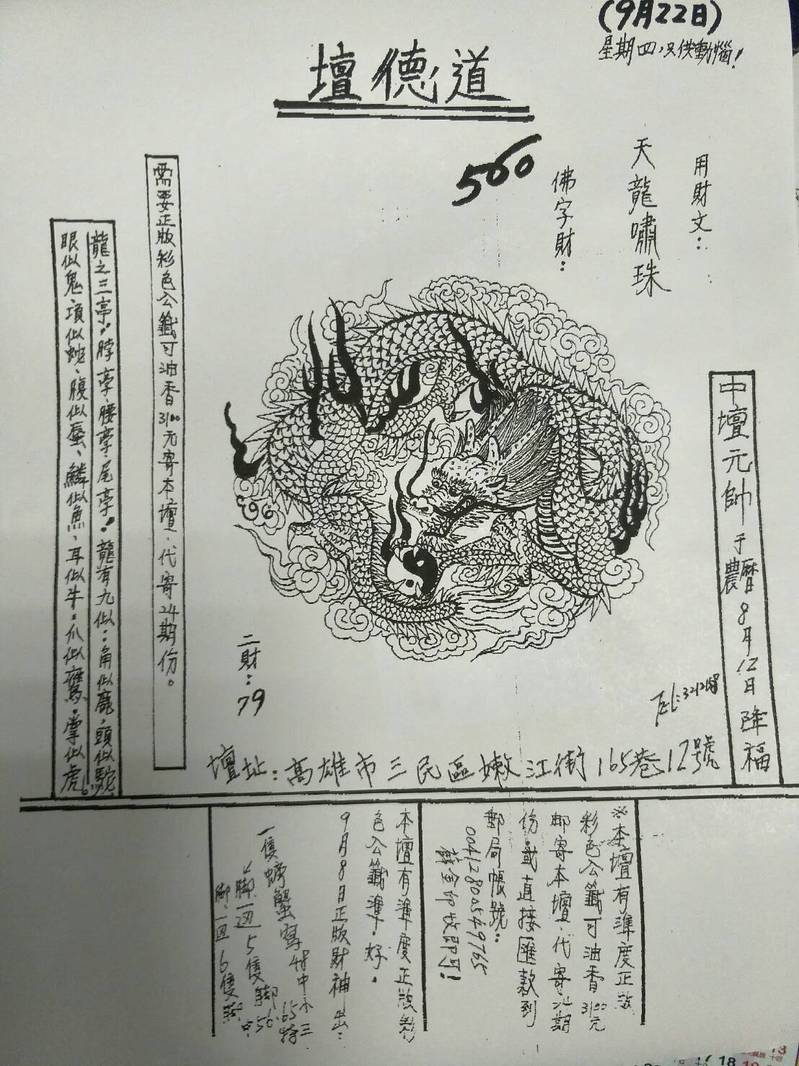 (9月22日)
星期四,只供動惱!
道德壇
用財文:
天龍嘯珠
佛字財:
560
中壇元帥于農曆8月12日降福
需要正版彩色公籤可油香3100元寄本壇、代寄24期份。
龍之三亭:脖亭、腰亭、尾亭!龍有九似:角似鹿、頭似駝
眼似鬼、項似蛇、腹似蜃、鱗似魚、耳似牛、爪似鷹、掌似虎。
996
二財:79
壇址:高雄市三民區嫩江街165巷12號
※本壇有準度正版
彩色公籤可油香3100元
郵寄本壇、代寄24期
份.或直接匯款到
郵局帳號:
00412800549765
本壇有準度正版彩
色公籤準.好.
9月8日正版財神出:
一隻螃蟹寫48中小三
腳一邊5隻腳
腳一邊6隻